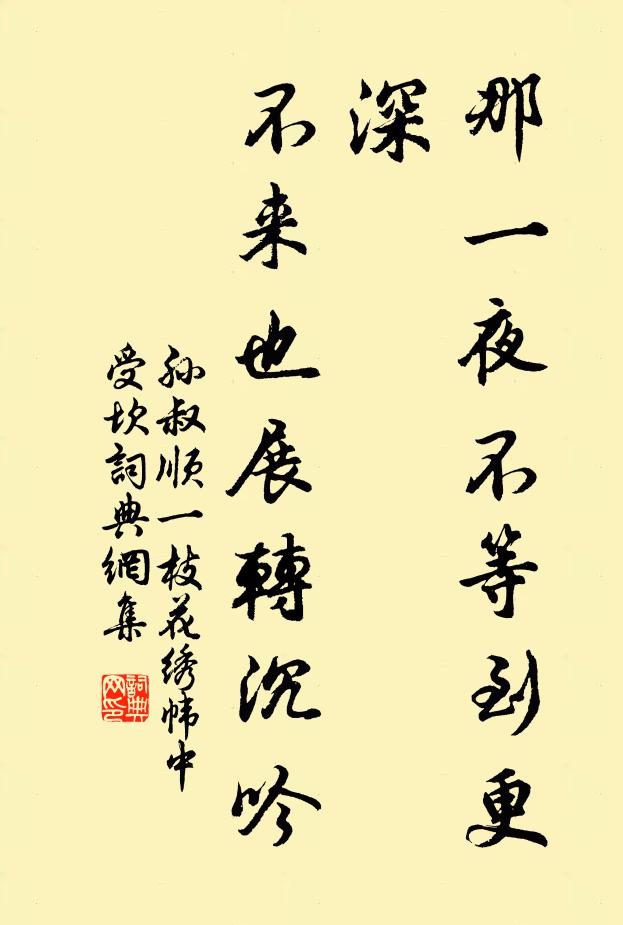 那一夜不等到更
深
不来也展轉沉吟
孙叔顺一枝花绣帏中
受坎詞典網集
詞典
网印